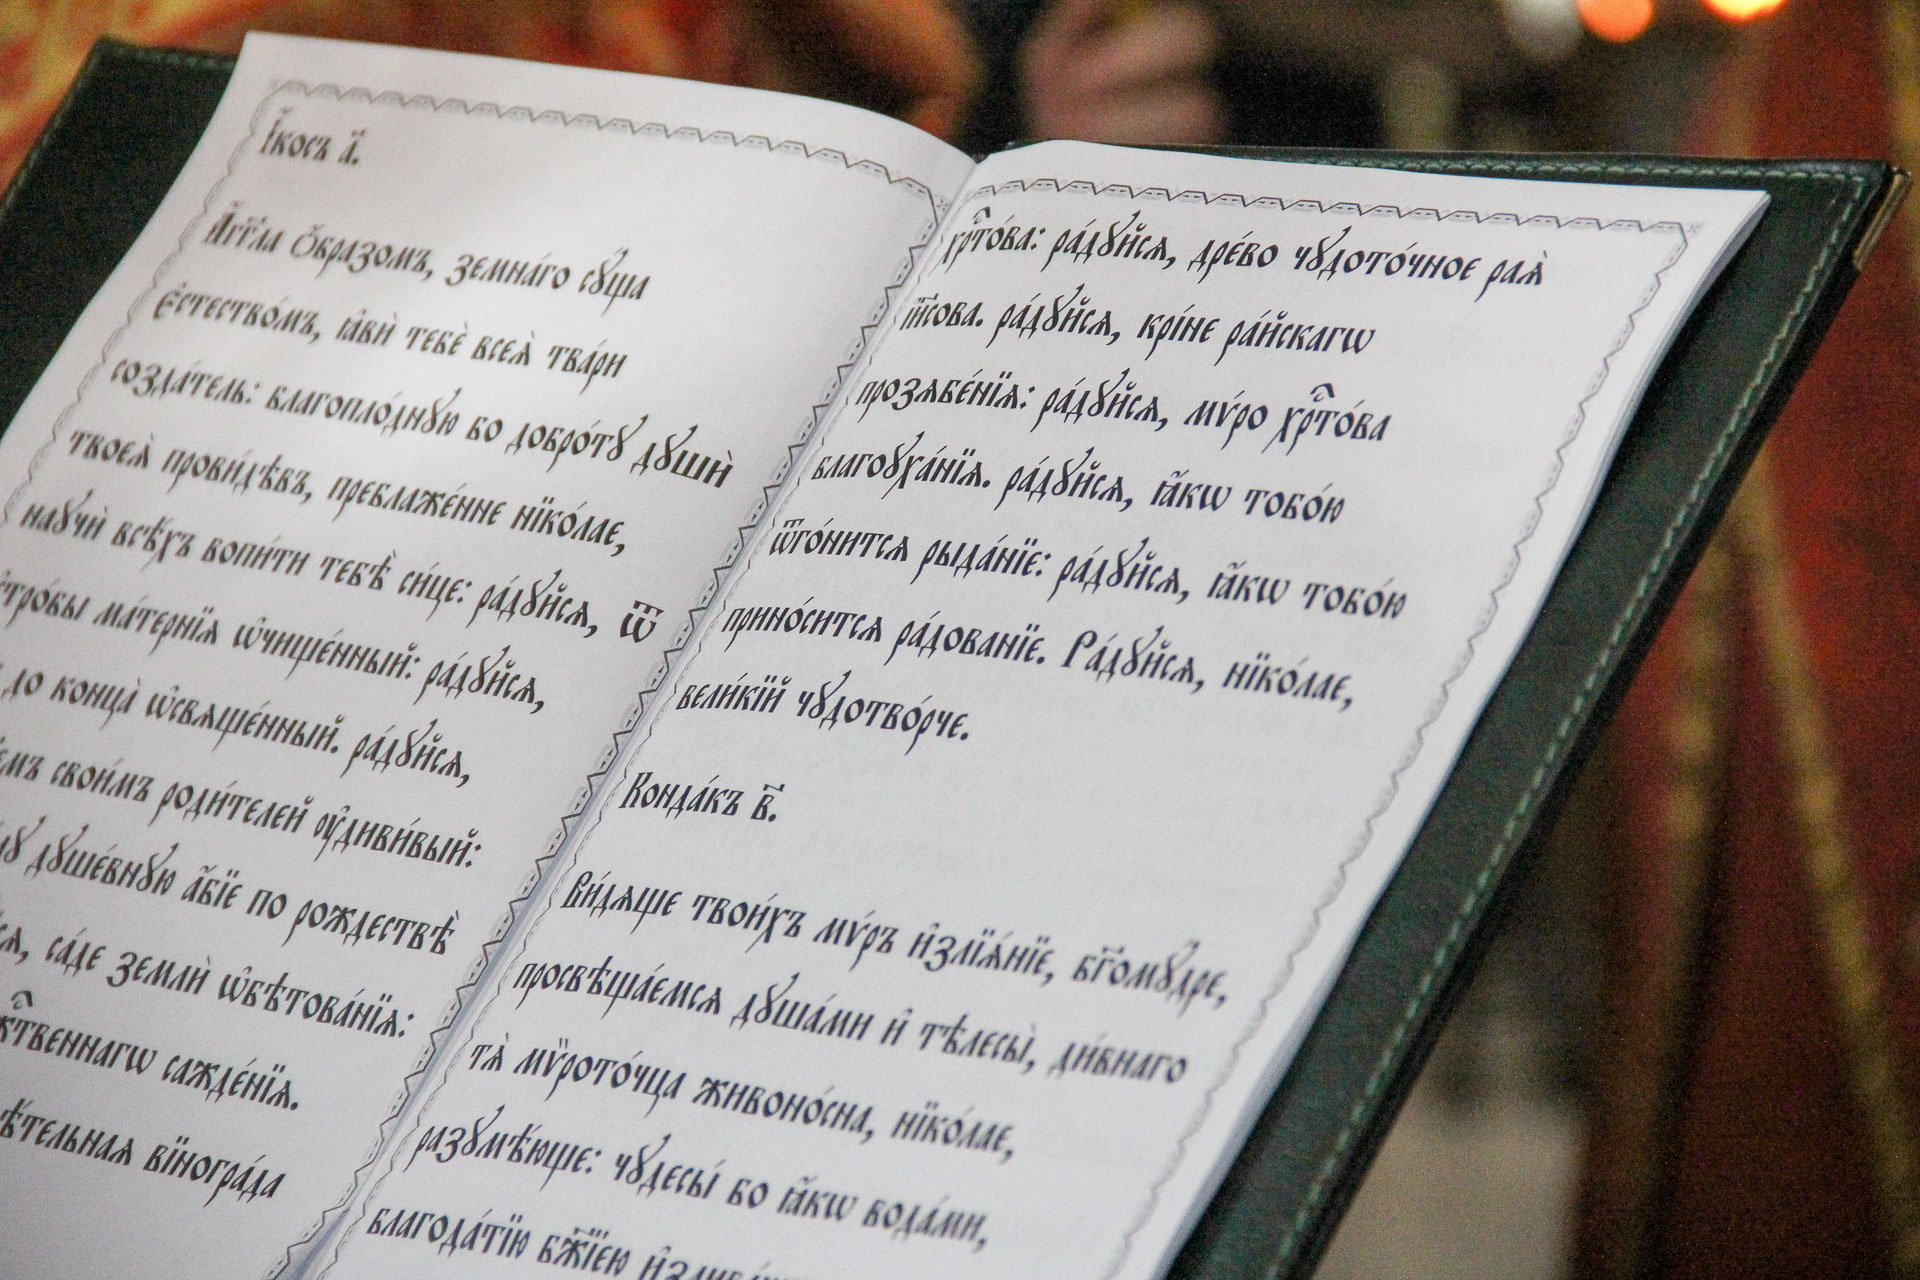 І҆́косъ а҃.
А҆́гг҃ла ѻ҆́бразомъ, земна́го сꙋ́ща
є҆стество́мъ, ꙗ҆вѝ тебѐ всеѧ̀ тва́ри
созда́тель: благопло́днꙋю бо добро́тꙋ дꙋшѝ
твоеѧ̀ прови́дѣвъ, преблаже́нне нїко́лае,
наꙋчѝ всѣ́хъ вопи́ти тебѣ̀ си́це: ра́дꙋйсѧ, ѿ
ма́тернїѧ ѡ҆чище́нный: ра́дꙋйсѧ,
до конца̀ ѡ҆свѧще́нный. ра́дꙋйсѧ,
свои́мъ роди́телей ᲂу҆диви́вый:
дꙋше́внꙋю а҆́бїе по рождествѣ̀
са́де землѝ ѡ҆бѣтова́нїѧ:
сажде́нїѧ.
вїногра́да
хрⷭ҇то́ва: ра́дꙋйсѧ, дре́во чꙋдото́чное раѧ̀
і҆и҃сова. ра́дꙋйсѧ, крі́не ра́йскагѡ
прозѧбе́нїѧ: ра́дꙋйсѧ, мѵ́ро хрⷭ҇то́ва
благоꙋха́нїѧ. ра́дꙋйсѧ, ꙗ҆́кѡ тобо́ю
ѿго́нитсѧ рыда́нїе: ра́дꙋйсѧ, ꙗ҆́кѡ тобо́ю
прино́ситсѧ ра́дованїе. Ра́дꙋйсѧ, нїко́лае,
вели́кїй чꙋдотво́рче.
Конда́къ в҃.
Ви́дѧще твои́хъ мѵ́ръ и҆злїѧ́нїе, бг҃омꙋ́дре,
просвѣща́емсѧ дꙋша́ми и҆ тѣлесы̀, ди́внаго
тѧ̀ мѷрото́чца живоно́сна, нїко́лае,
разꙋмѣ́юще: чꙋдесы́ бо ꙗ҆́кѡ вода́ми,
благода́тїю бж҃їею